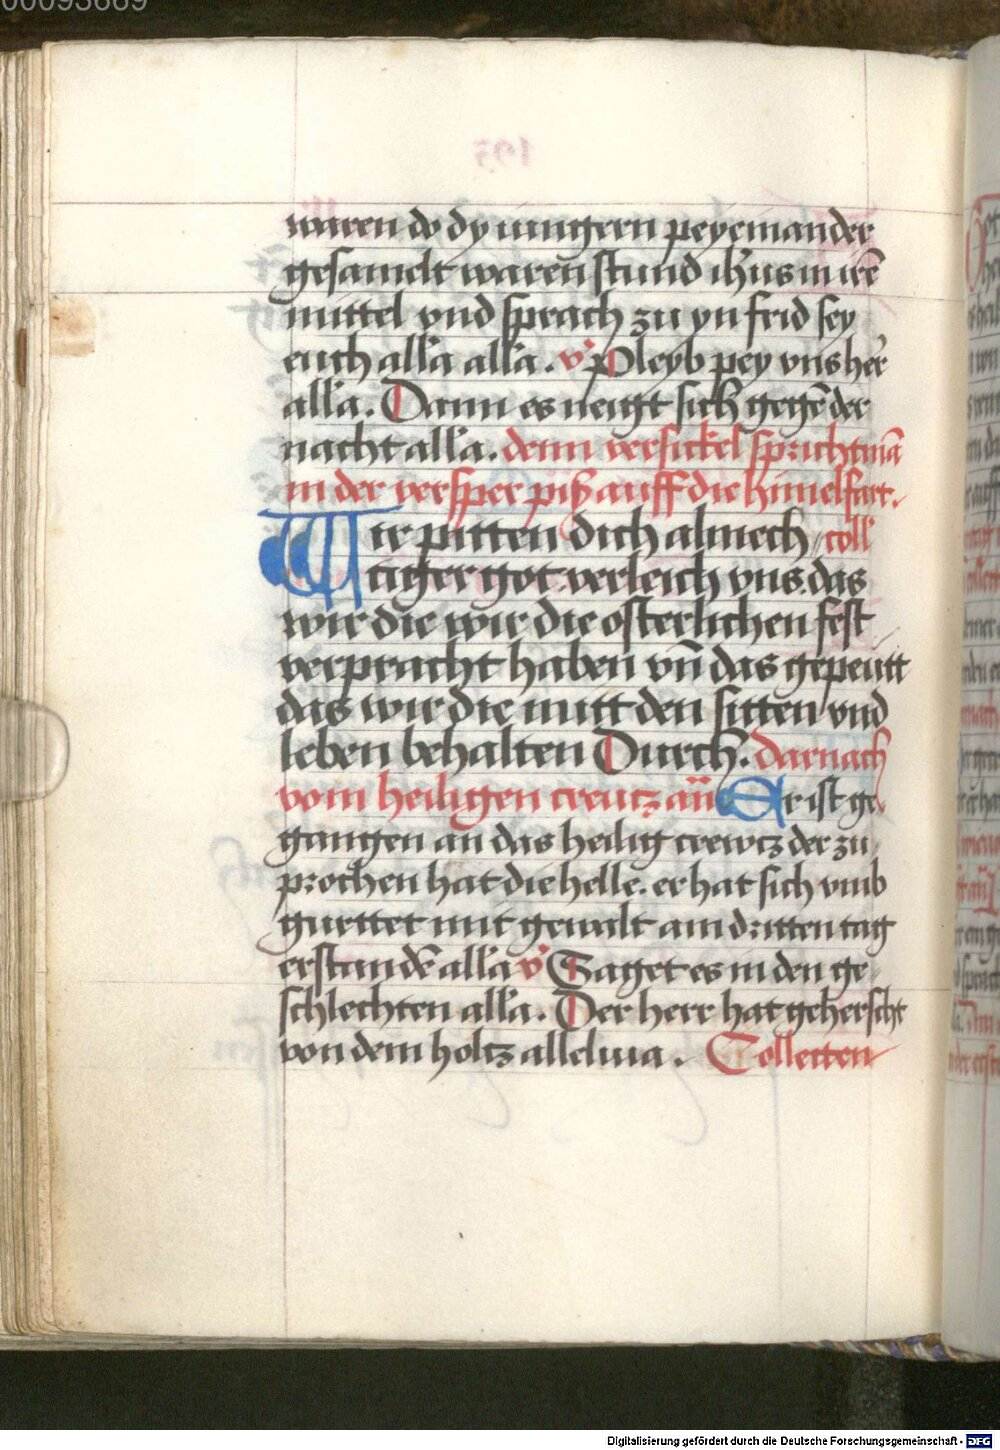 waren do dy iungern peyeinander
gesamelt waren stund ih̄us in irē
mittel vnd sprach zu yn frid sey
euch all'a all'a. v̓ Pleyb pey vns her̄
all'a. Dann es neigt sich gegē der
nacht all'a. denn versickel sprichtmā
in der versper piß auff die himelfart.
Wir pitten dich almech coll
tiger got verleich vns das
wir die wir die osterlichen fest
verpracht haben vn̄ das gepeutt
das wir die mitt den sitten vnd
leben behalten Durch. darnach
vom heiligen creutz an̄ Er ist ge
gangen an das heilig crewtz der zu
prochen hat die helle. er hat sich vmb
gurttet mit gewalt am dritten tag
erstandē all'a v̓ Saget es in den ge
schlechten all'a. Der herr hat geherscht
von dem holtz alleluia. Collecten
Digitalisierung gefördert durch die Deutsche Forschungsgemeinschaft - DFG